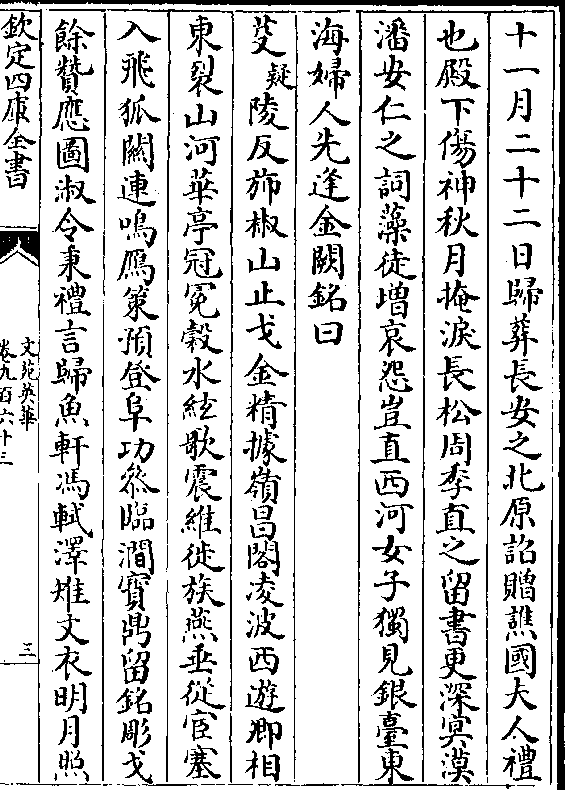 十一月二十二日歸葬長安之北原詔贈譙國夫人禮
也殿下傷神秋月掩淚長松周季直之留書更深冥漠
潘安仁之詞藻徒增哀怨豈直西河女子獨見銀臺東
海婦人先逢金闕銘曰
芟疑陵反斾椒山止戈金精據嶺昌閣凌波西遊卿相
東裂山河華亭冠冕穀水絃歌震維徙族燕垂從宦塞
入飛狐關連鳴鴈策預登阜功叅臨澗寶鼎留銘彫戈
餘贊應圖淑令秉禮言歸魚軒馮軾澤雉文衣明月照
欽定四庫全書
文苑英華
卷九百六十三
三